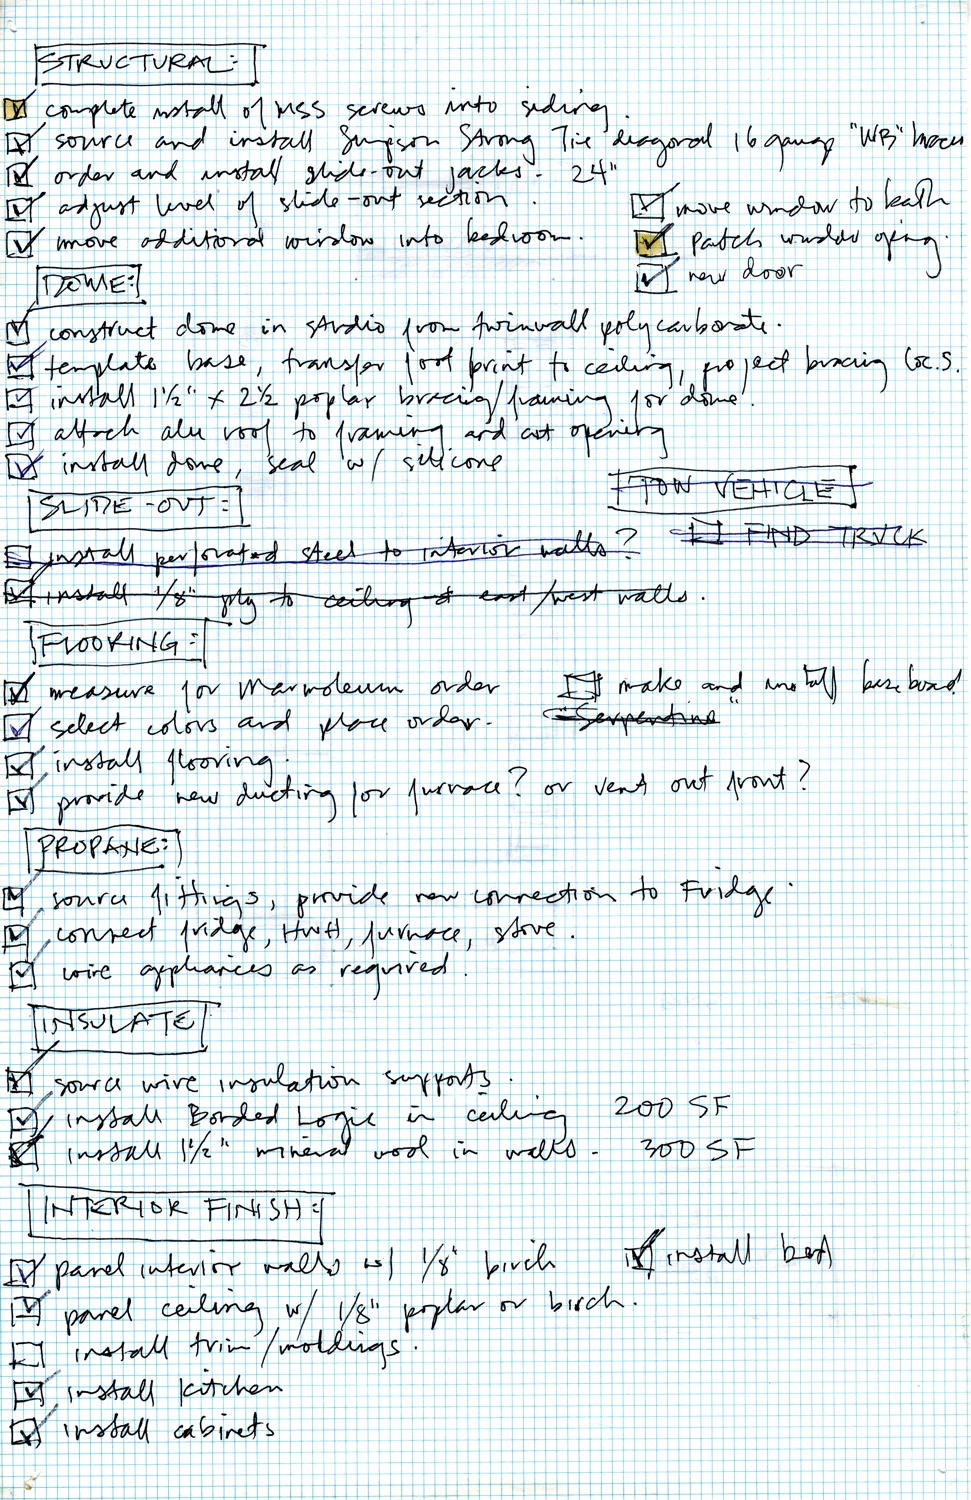 STRUCTURAL:
complete install of MSS screws into siding.
source and install Simpson Strong Tie diagonal 16 gauge "WB" braces
order and install slide-out jacks. 24"
adjust level of slide-out section.
move window to bath
move additional window into bedroom.
patch window opening.
new door
DOME:
construct dome in studio from twinwall polycarbonate.
template base, transfer foot print to ceiling, project bracing loc.s.
install 1½" x 2½ poplar bracing/framing for dome.
attach alu roof to framing and cut opening
install dome, seal w/ silicone
TOW VEHICLE
SLIDE-OUT:
FIND TRUCK
install perforated steel to interior walls?
install 1/8" ply to ceiling & east/west walls.
FLOORING:
measure for Marmoleum order
make and install baseboard
select colors and place order.
"Serpentine"
install flooring.
provide new ducting for furnace? or vent out front?
PROPANE:
source fittings, provide new connection to Fridge.
connect fridge, HWH, furnace, stove.
wire appliances as required.
INSULATE
source wire insulation supports.
install Bonded Logic in ceiling 200 SF
install 1½" mineral wool in walls. 300 SF
INTERIOR FINISH:
panel interior walls w/ 1/8" birch
install bed
panel ceiling w/ 1/8" poplar or birch.
install trim/moldings.
install kitchen
install cabinets